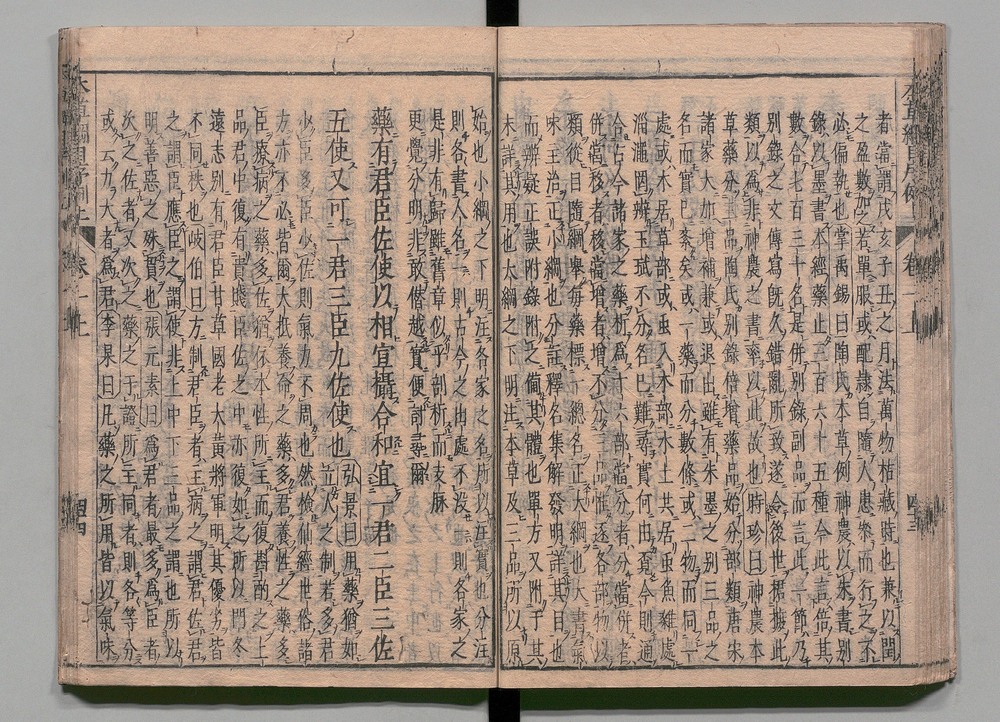 者當謂戊亥子丑之月法萬物枯藏時也兼以閏
之盈數加之若單服或配隸自隨人患參而行之不
必偏執也掌禹錫曰陶氏本草例神農以朱書別
錄以墨書本經藥止三百六十五種今此言倍其
數合七百三十名是併別錄副品而言此一節乃
別錄之文傳寫既久錯亂所致遂令後世捃摭此
類以爲非神農之書率以此故也時珍曰神農本
草藥分三品陶氏別錄倍增藥品始分部類唐宋
諸家大加增補兼或退出雖有朱墨之別三品之
名而實已紊矣或一藥而分數條或二物而同一
處或木居草部或蟲入木部水土共居蟲魚雜處
淄澠罔辨玉珷不分名已難尋實何由覓今則通
合古今諸家之藥析爲十六部當分者分當併者
併當移者移當增者增不分三品惟逐各部物以
類從目隨綱舉每藥標一總名正大綱也大書氣
味主治正小綱也分註釋名集解發明詳其目也
而辨疑正誤附錄附之備其體也單方又附于其
末詳其用也大綱之下明注本草及三品所以原
始也小綱之下明注各家之名所以注實也分注
則各書人名一則古今之出處不没一則各家之
是非有歸雖舊章似乎剖析而支脉
更覺分明非敢僭越實便討尋爾
藥有君臣佐使以相宣攝合和宜一君二臣三佐
五使又可一君三臣九佐使也
弘景曰用藥猶如立人之制若多君
少臣多臣少佐則氣力不周也然檢仙經世俗諸
方亦不必皆爾大抵養命之藥多君養性之藥多
臣療病之藥多佐猶依本性所主而復斟酌之上
品君中復有貴賤臣佐之中亦復如之所以門冬
遠志別有君臣甘草國老大黃將軍明其優劣皆
不同秩也岐伯曰方制君臣者主病之謂君佐君
之謂臣應臣之謂使非上中下三品之謂也所以
明善惡之殊貫也張元素曰爲君者最多爲臣者
次之佐者又次之藥之于證所主同者則各等分
或云力大者爲君李杲曰凡藥之所用皆以氣味
卷一上
卷一上